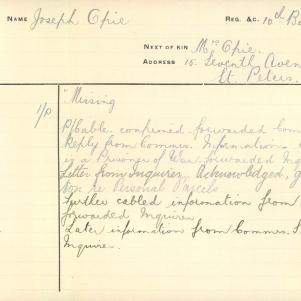 NAME Joseph Opie REG. &C. 10th Ba
NEXT OF KIN Mrs Opie.
ADDRESS 15 Seventh Aven
St. Peters.
"Missing
1/P P/Cable. confirmed forwarded Com
Reply from Commrs. Information
is a Prisoner of War. forwarded Inq
Letter from Inquirer, Acknowledged, g
re Personal Parcels
Further cabled information from
forwarded Inquirer
Later information from Commrs. F
Inquirer.